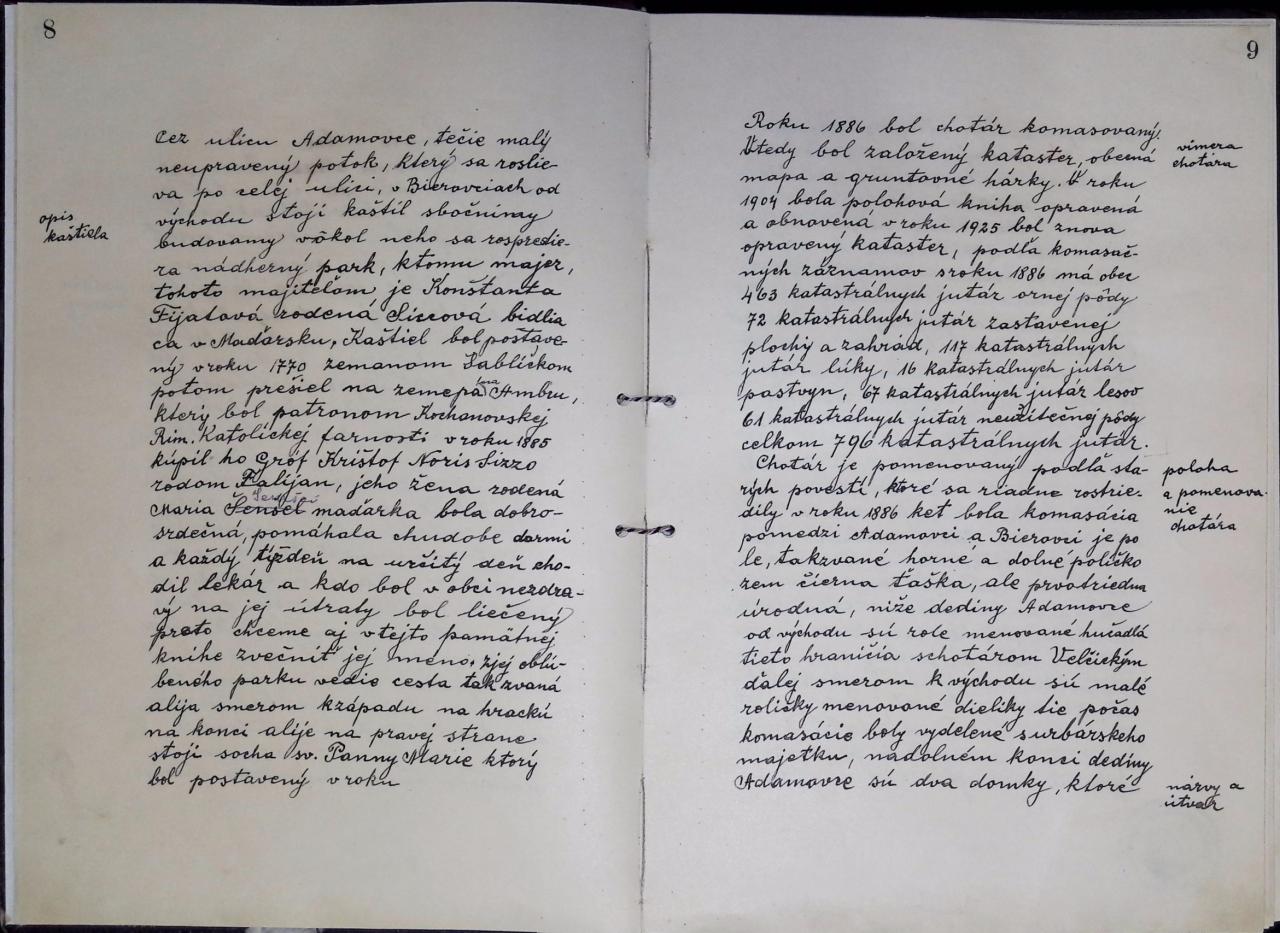 8
Cez ulicu Adamovce, tečie malý
neupravený potok, který sa roslie-
va po celej ulici, v Bierovciach od
východu stojí kaštíl sbočninay
budovamy vôkol neho sa rospredie-
ra nádherný park, ktomu majer,
tohoto majiteľom je Konštanta
Fijatová rodená Siccová bidlia
ca v Maďarsku, Kaštiel bol postave-
ný v roku 1770 zemanom Sabličkom
potom prešiel na zemepána Ambru,
který bol patronom Kochanovskej
Rim. Katolíckej farnosti v roku 1885
kúpil ho Gróf Krištof Noris Sizzo
rodom Talijan, jeho žena rodená
Maria maďarka bola dobro-
srdečná, pomáhala chudobe darmi
a každý týždeň na určitý deň cho-
dil lekár a kdo bol v obci nezdra-
vý na jej útraty bol liečený
preto chceme aj vtejto pamätnej
knihe zvečniť jej meno. zjej oblú-
beného parku vedie cesta tak zvaná
alija smerom kzápadu na hrackú
na konci alije na pravej strane
stojí socha sv. Panny Marie ktorý
bol postavený v roku
opis
kaštiela
9
Roku 1886 bol chotár komasovaný.
Vtedy bol založený kataster, obecná
mapa a gruntovné hárky. V roku
1904 bola polohová kniha opravená
a obnovená v roku 1925 bol znova
opravený kataster, podľa komasač-
ných záznamov sroku 1886 má obec
463 katastrálnych jutár ornej pôdy
72 katastrálnych jutár zastavenej
plochy a zahrád, 117 katastrálnych
jutár lúky, 16 katastrálnych jutár
pastvyn, 67 katastrálnych jutár lesov
61 katastrálnych jutár neužitečnej pôdy
celkom 796 katastrálnych jutár.
Chotár je pomenovaný podľa sta-
rých povestí, ktoré sa riadne rostrie-
dily v roku 1886 keť bola komasácia
pomedzi Adamovci a Bierovci je po
le, takzvané horné a dolné políčko
zem čierna ťaška, ale prvotriedna
úrodná, niže dediny Adamovce
od východu sú role menované hučadlá
tieto hraničia schotárom Velčickým
ďalej smerom k východu sú malé
roličky menované dieliky tie počas
komasácie boly vydelené surbárskeho
majetku, nadolném konci dediny
Adamovce sú dva domky, ktoré
vímera
chotára
poloha
a pomenova-
nie
chotára
názvy a
útvar